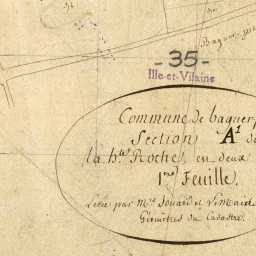 - 35 -
Ille-et-Vilaine
Commune de baguer
Section A1 de
la hte Roche, en deux
1re Feuille.
Levée par Mrs
Géomètres du Cadastre.